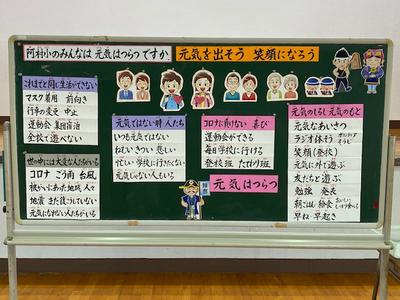 阿村小のみんなは 元気はつらつですか
元気を出そう 笑顔になろう
これまでと同じ生活ができない
マスク着用 前向き
行事の変更 中止
運動会 集団宿泊
全校で遊べない
世の中には大変な人たちがいる
コロナ こう雨 台風
被いにあった地域 人々
地震 まだ復こうしていない
元気になれない人たちがいる
元気ではない時 人たち
いつも元気ではない
ねむい きつい 悲しい
忙しい 学校に行きたくない
元気じゃない人もいる
コロナに負けない 喜び
運動会ができる
毎日学校に行ける
登校班 たてわり班
元気はつらつ
元気のしるし 元気のもと
元気なあいさつ
ラジオ体そう
笑顔(登校)
元気に外で遊ぶ
友だちと遊ぶ
勉強 発表
朝ごはん 給食
早ね・早起き